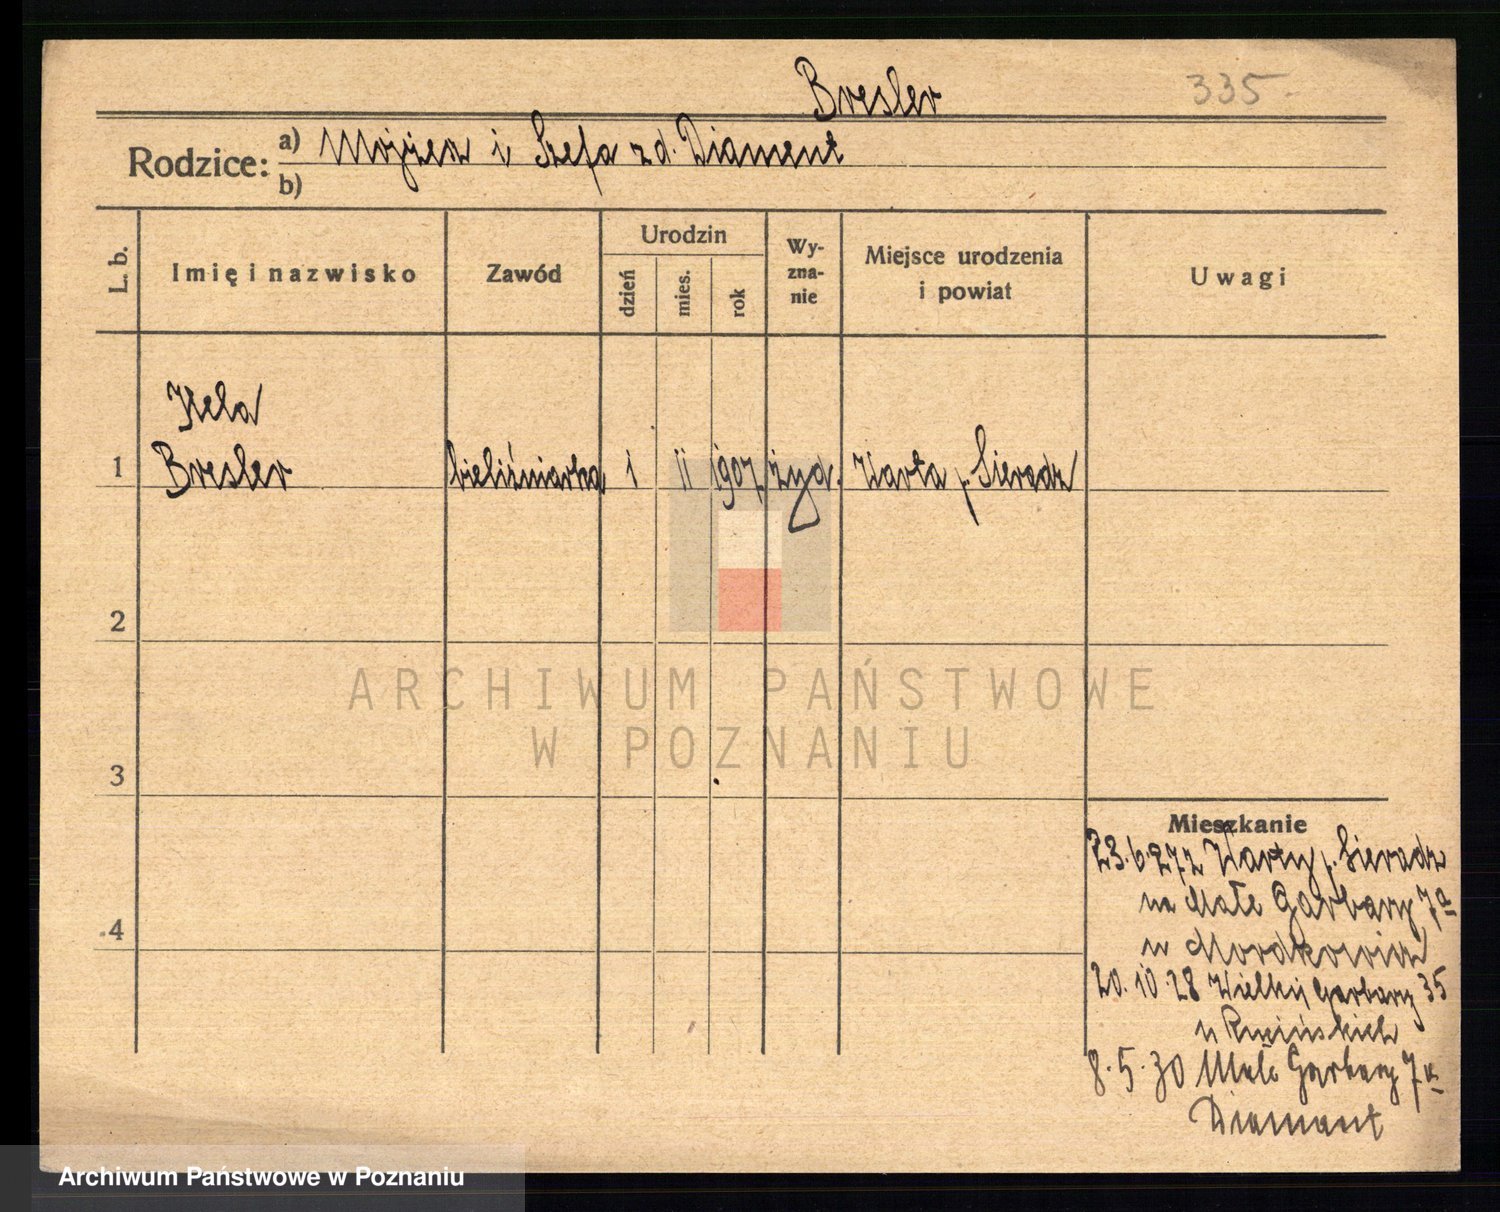 Bresler
335
Rodzice: a) Mojżesz i Szefa z d. Diament
b)
L. b.
Imię i nazwisko
Zawód
Urodzin
dzień
mies.
rok
Wy-
zna-
nie
Miejsce urodzenia
i powiat
Uwagi
Hela
1 Bresler bieliźniarka 1 II 1907 żyd. Warta p. Sieradz
2
3
4
Mieszkanie
23.6.27 z Warty p. Sieradz
na Małe Garbary 7a
u Mordkowicz
20.10.28 Wielkie Garbary 35
u
8.5.30 Małe Garbary 7a
Diament
ARCHIWUM PAŃSTWOWE
W POZNANIU
Archiwum Państwowe w Poznaniu